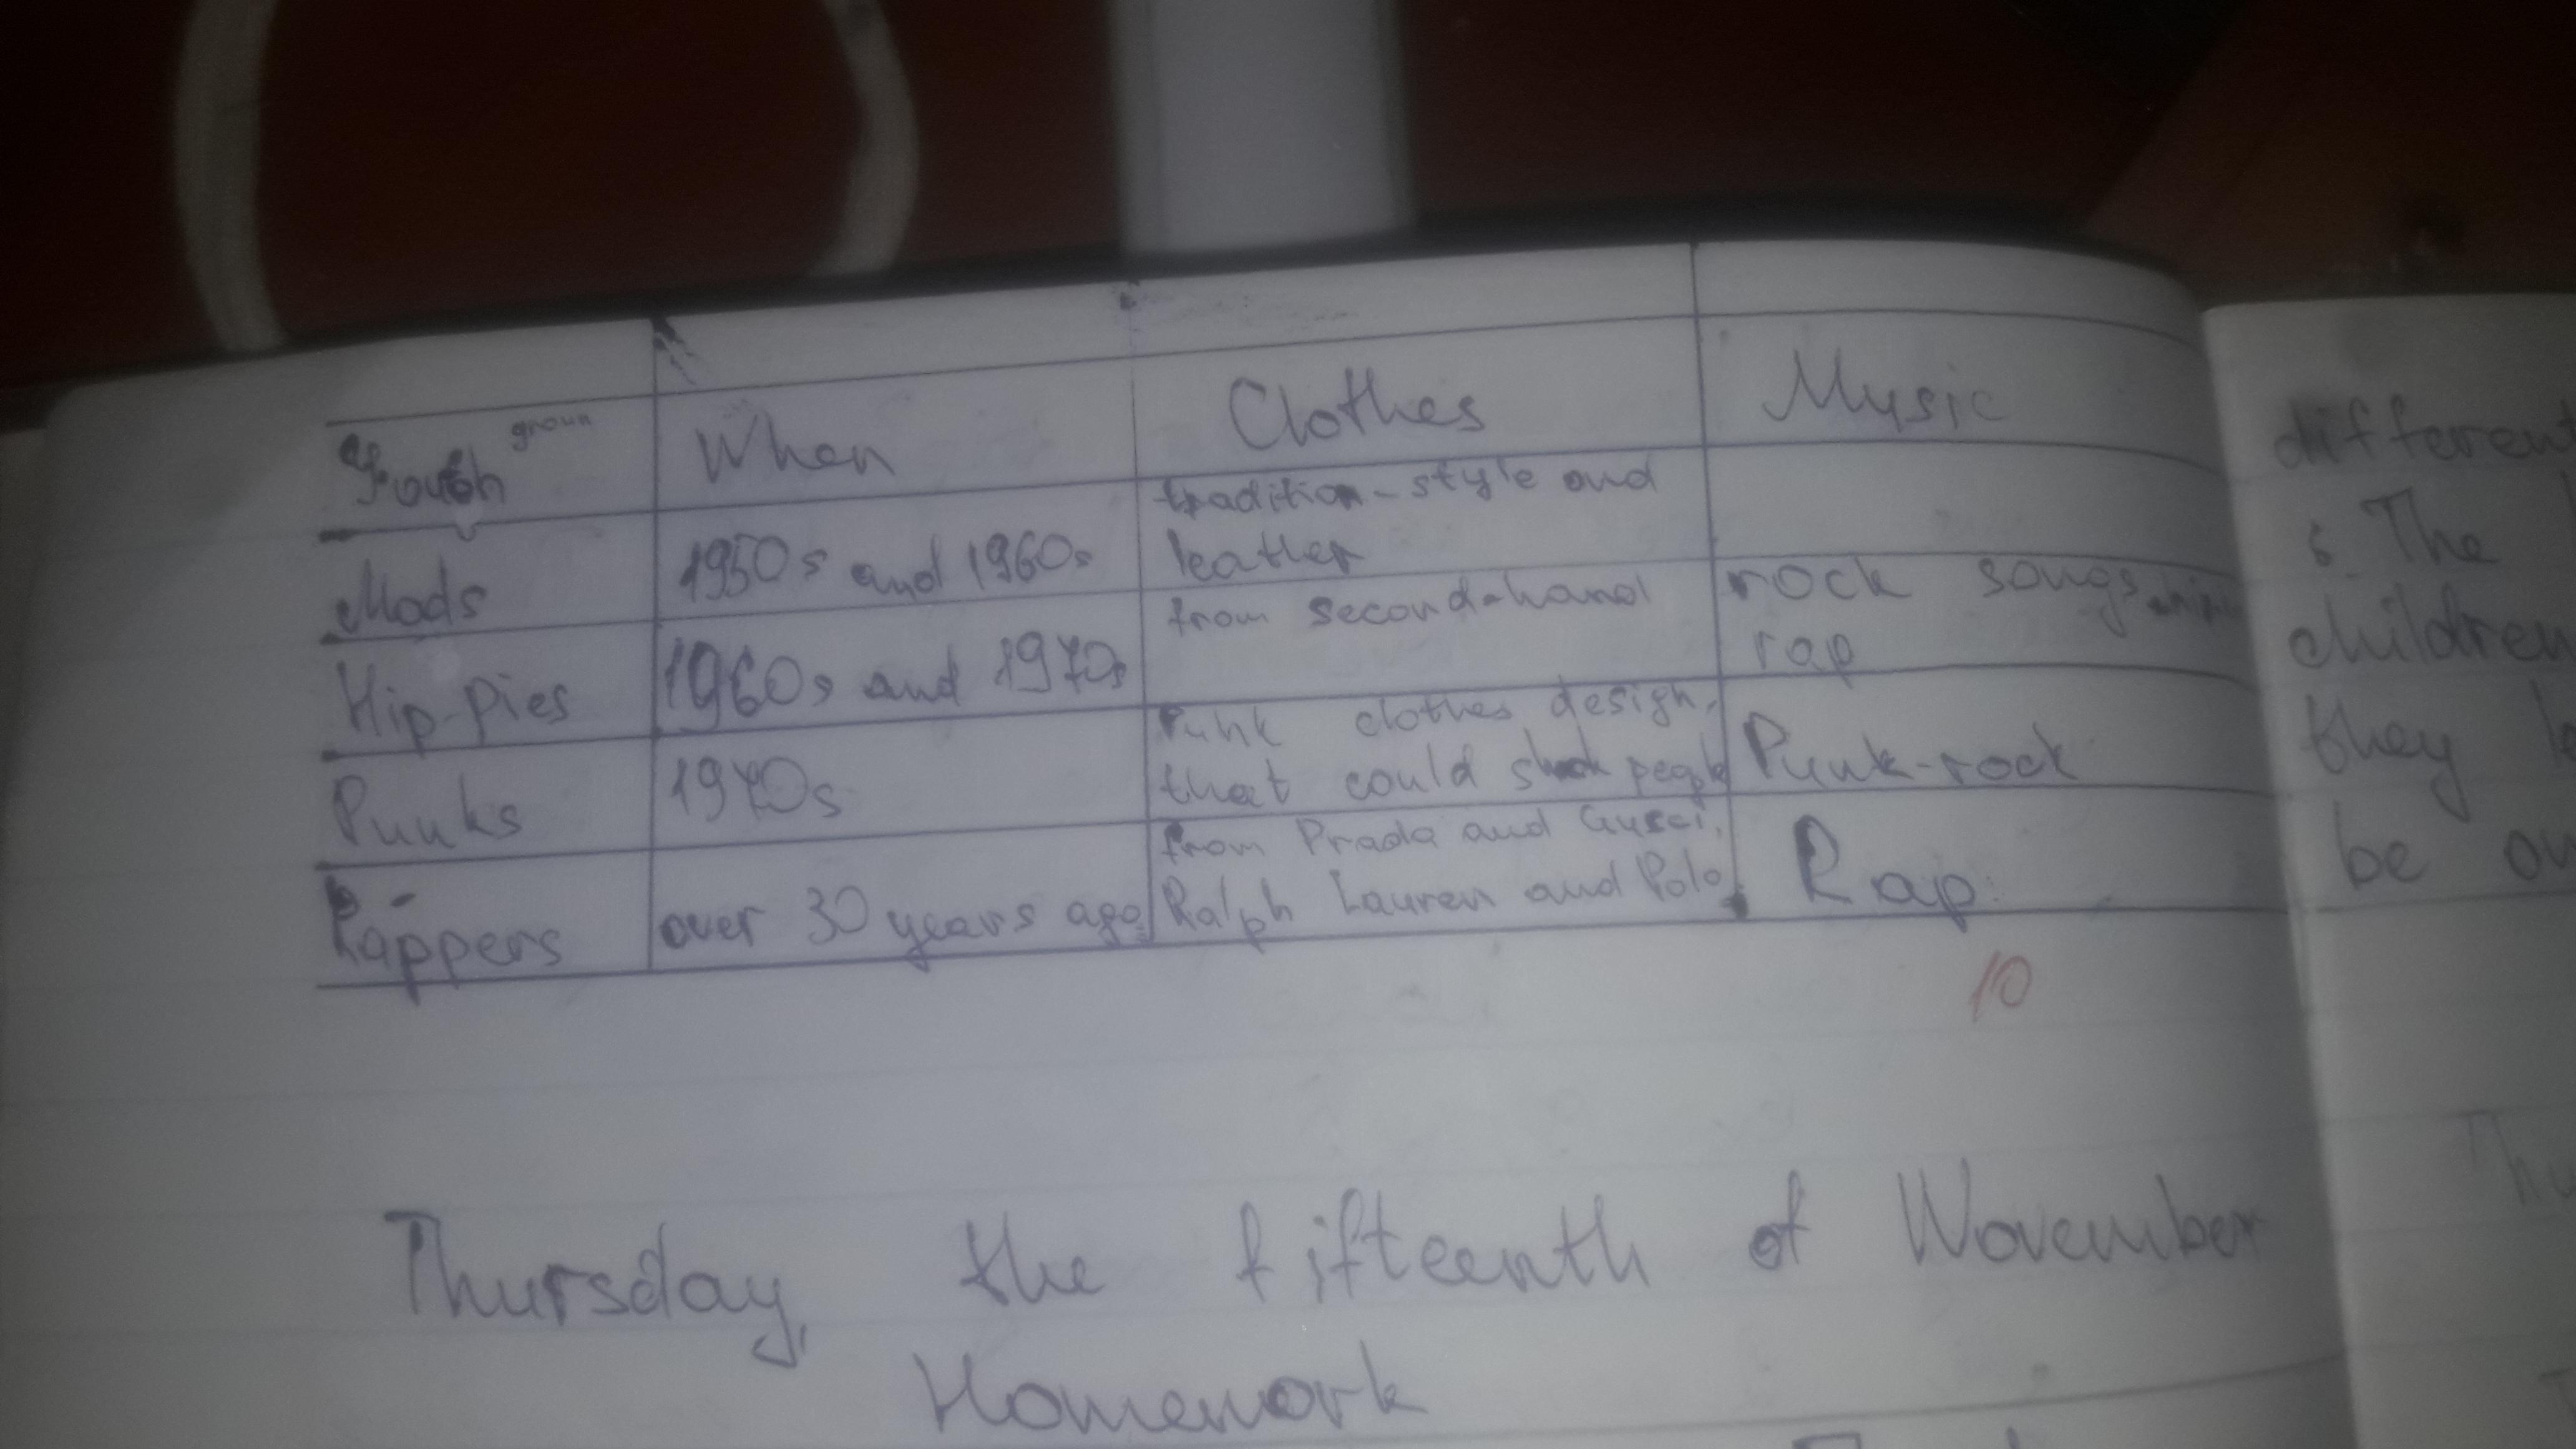 Youth group When Clothes Mysic
Mods 1950s and 1960s tradition-style and
leather
Hip-pies 1960s and 1970s from second-hand rock songs
rap
Punks 1970s Punk clothes design,
that could shock people Punk-rock
Rappers over 30 years ago from Prada and Gucci,
Ralph Lauren and Polo. Rap.
10
Thursday, the fifteenth of November
Homework
different
s. The
children
they
be